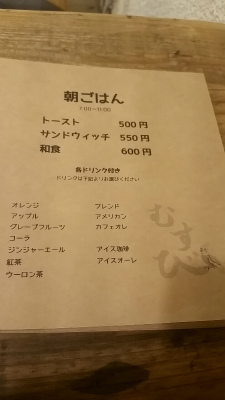 朝ごはん
7:00~11:00
トースト 500円
サンドウィッチ 550円
和食 600円
各ドリンク付き
ドリンクは下記よりお選びください
オレンジ
アップル
グレープフルーツ
コーラ
ジンジャーエール
紅茶
ウーロン茶
ブレンド
アメリカン
カフェオレ
アイス珈琲
アイスオーレ
むすび